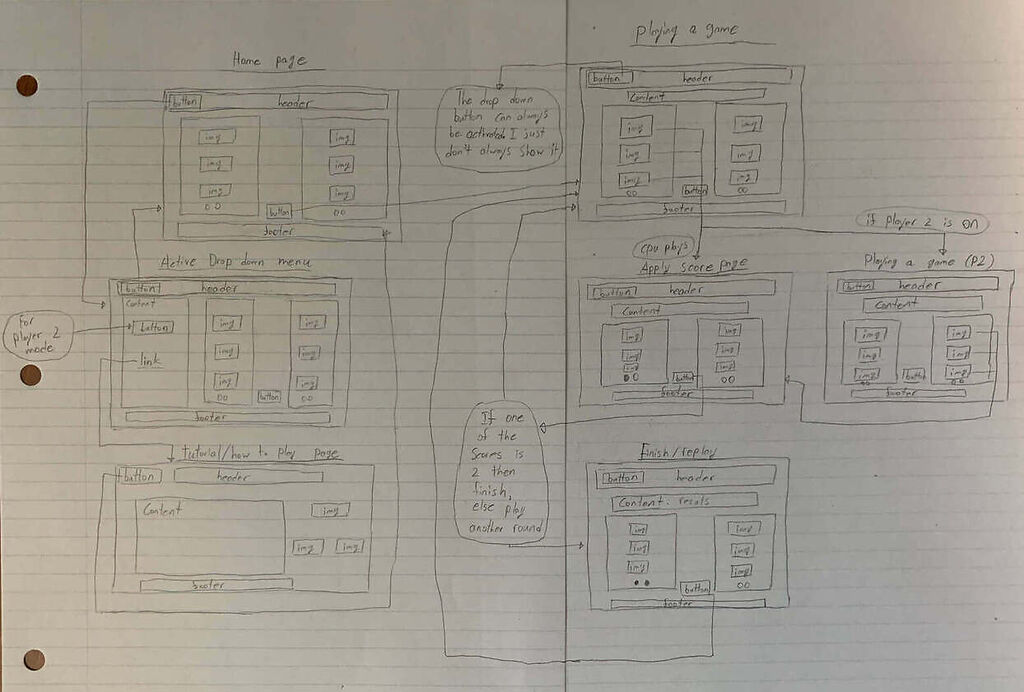 Home page
button
header
img
img
img
img
img
img
button
footer
Active Drop down menu
button
header
Content
button
link
img
img
img
img
img
img
button
footer
For
player 2
mode
tutorial/how to play page
button
header
Content
img
img
img
footer
The drop down
button can always
be activated I just
don't always show it
Playing a game
button
header
Content
img
img
img
img
img
img
button
footer
if player 2 is on
cpu plays
Apply score page
button
header
Content
img
img
img
img
img
img
button
footer
Playing a game (P2)
button
header
Content
img
img
img
img
img
img
button
footer
If one
of the
scores is
2 then
finish,
else play
another round
Finish/replay
button
header
Content: resals
img
img
img
img
img
img
button
footer